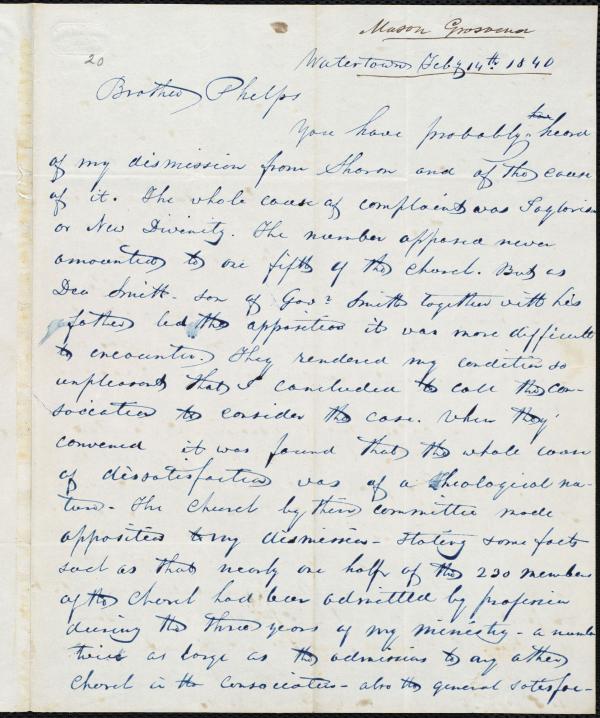 Mason Grosvenor
20
Watertown Feby 14th 1840
Brother Phelps
You have probably heard
of my dismission from Sharon and of the cause
of it. The whole cause of complaint was Taylorism
or New Divinity. The number opposed never
amounted to one fifth of the church. But as
Dea Smith - son of Govr Smith together with his
father led the opposition it was more difficult
to encounter. They rendered my condition so
unpleasant that I concluded to call the con-
sociation to consider the case. When they
convened it was found that the whole cause
of dissatisfaction was of a theological na-
ture - The church by their committee made
opposition to my dismission - stating some facts
such as that nearly one half of the 230 members
of the church had been admitted by profession
during the three years of my ministry - a number
twice as large as the admissions to any other
church in the consociation - also the general satisfac-